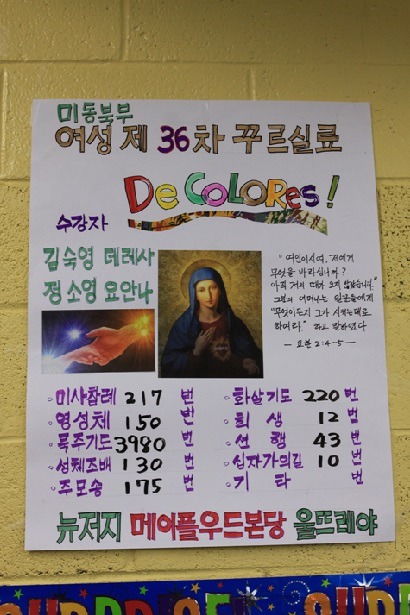 미동북부
여성 제 36차 꾸르실료
De COLORes!
수강자
김숙영 데레사
정소영 요안나
"여인이시여, 저에게
무엇을 바라십니까?
아직 저의 때가 오지 않았습니다."
그분의 어머니는 일꾼들에게
"무엇이든지 그가 시키는대로
하여라." 라고 말하였다
- 요한 2:4-5 -
미사참례 217 번
영성체 150 번
묵주기도 3980 번
성체조배 130 번
주모송 175 번
화살기도 220 번
희생 12 번
선행 43 번
십자가의길 10 번
기타 번
뉴저지 메이플우드본당 울뜨레야